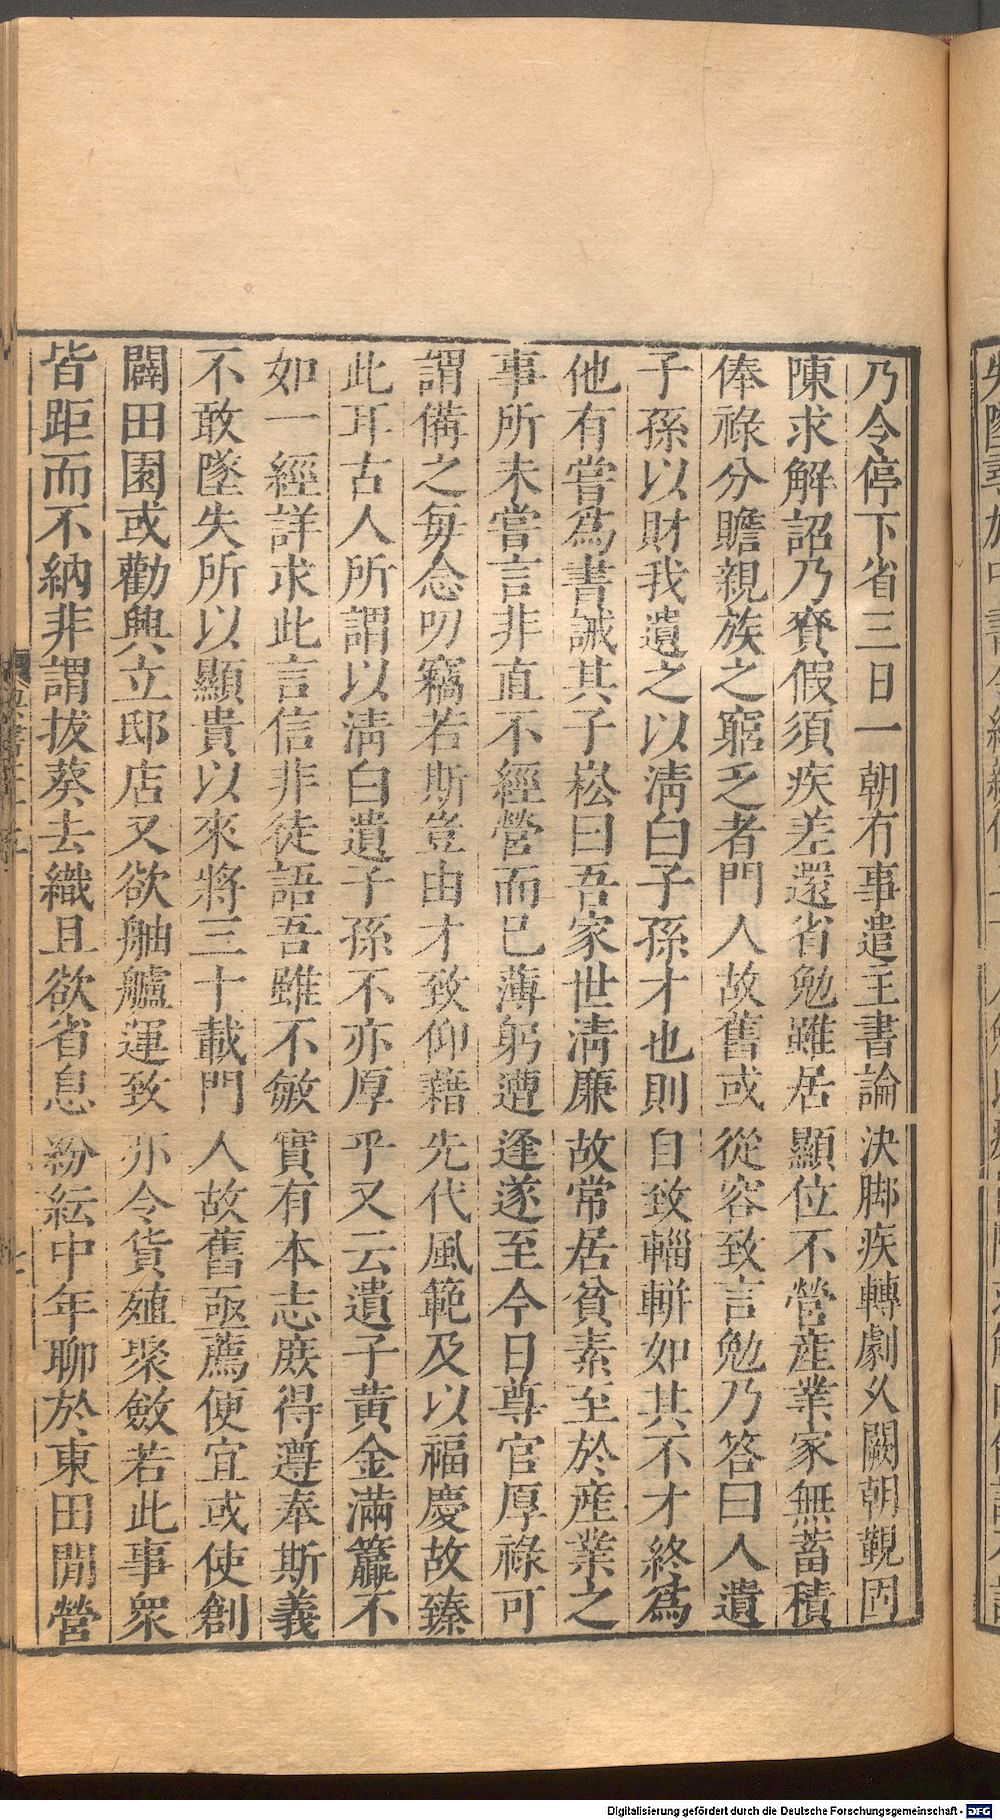 乃令停下省三日一朝有事遣主書論決脚疾轉劇久闕朝覲固
陳求解詔乃賚假須疾差還省勉雖居顯位不營産業家無蓄積
俸祿分贍親族之窮乏者門人故舊或從容致言勉乃答曰人遺
子孫以財我遺之以清白子孫才也則自致輜軿如其不才終為
他有嘗為書誡其子崧曰吾家世清廉故常居貧素至於産業之
事所未嘗言非直不經營而已薄躬遭逢遂至今日尊官厚祿可
謂備之每念叨竊若斯豈由才致仰藉先代風範及以福慶故臻
此耳古人所謂以清白遺子孫不亦厚乎又云遺子黃金滿籯不
如一經詳求此言信非徒語吾雖不敏實有本志庶得遵奉斯義
不敢墜失所以顯貴以來將三十載門人故舊亟薦便宜或使創
闢田園或勸興立邸店又欲舳艫運致亦令貨殖聚斂若此事衆
皆距而不納非謂拔葵去織且欲省息紛紜中年聊於東田閒營
Digitalisierung gefördert durch die Deutsche Forschungsgemeinschaft - DFG